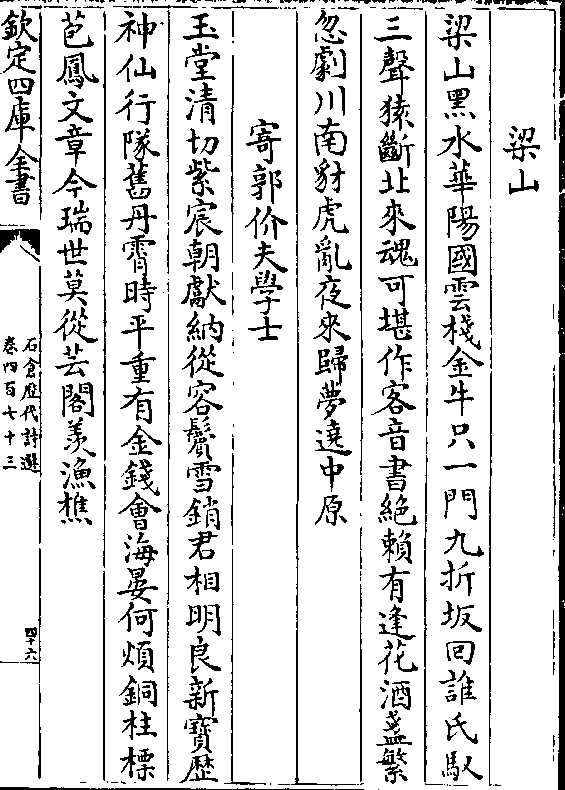 梁山
梁山黑水華陽國雲棧金牛只一門九折坂回誰氏馭
三聲猿斷北來魂可堪作客音書絶頼有逢花酒盞繁
忽劇川南豺虎亂夜來歸夢遶中原
寄郭价夫學士
玉堂清切紫宸朝獻納從容鬢雪銷君相明良新寳歴
神仙行隊舊丹霄時平重有金錢會海晏何煩銅柱標
苞鳳文章今瑞世莫從芸閣羡漁樵
欽定四庫全書
石倉歴代詩選
卷四百七十三
四十六